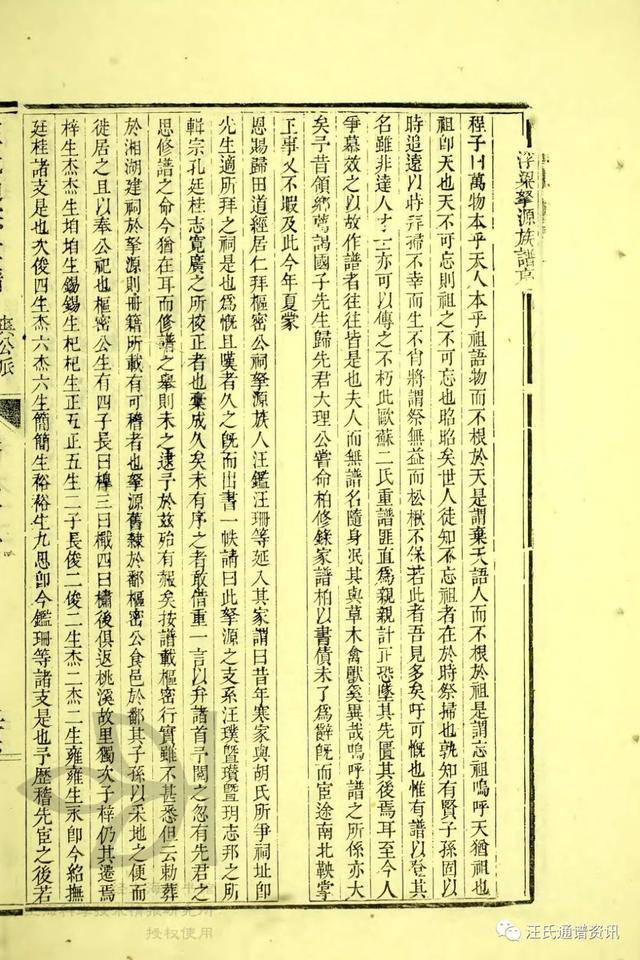 浮梁拏源族譜序
程子曰萬物本乎天人本乎祖語物而不根於天是謂棄天語人而不根於祖是謂忘祖嗚呼天猶祖也
祖卽天也天不可忘則祖之不可忘也昭昭矣世人徒知不忘祖者在於時祭掃也孰知有賢子孫固以
時追遠以時拜掃不幸而生不肖將謂祭無益而松楸不保若此者吾見多矣吁可慨也惟有譜以登其
名雖非達人才士亦可以傳之不朽此歐蘇二氏重譜匪直為親親計正恐墜其先匱其後焉耳至今人
爭慕效之以故作譜者往往皆是也夫人而無譜名隨身泯其與草木禽獸奚異哉嗚呼譜之所係亦大
矣予昔領鄉薦謁國子先生歸先君大理公嘗命柏修錄家譜柏以書債未了為辭旣而宦途南北鞅掌
王事又不暇及此今年夏蒙
恩賜歸田道經居仁拜樞密公祠拏源族人汪鑑汪珊等延入其家謂曰昔年寒家與胡氏所爭祠址卽
先生適所拜之祠是也為慨且嘆者久之旣而出書一帙請曰此拏源之支系汪璞暨瓚暨玥志邦之所
輯宗孔廷桂志寬廣之所校正者也棄成久矣未有序之者敢借重一言以弁諸首予閱之忽有先君之
思修譜之命今猶在耳而修譜之舉則未之逮予於茲殆有赧矣按譜載樞密行實雖不甚悉但云勅葬
於湘湖建祠於拏源則冊籍所載有可稽者也拏源舊隸於鄱樞密公食邑於鄱其子孫以采地之便而
徙居之且以奉公祀也樞密公生有四子長曰樟三曰檝四曰橚後俱返桃溪故里獨次子梓仍其遷焉
梓生杰杰生垍垍生錫錫生杞杞生正五正五生二子長俊二俊二生杰二杰二生雍雍生永卽今紹撫
廷桂諸支是也次俊四生杰六杰六生簡簡生裕裕生九思卽今鑑珊等諸支是也予歷稽先宦之後若
公派
授权使用
汪氏通谱资讯